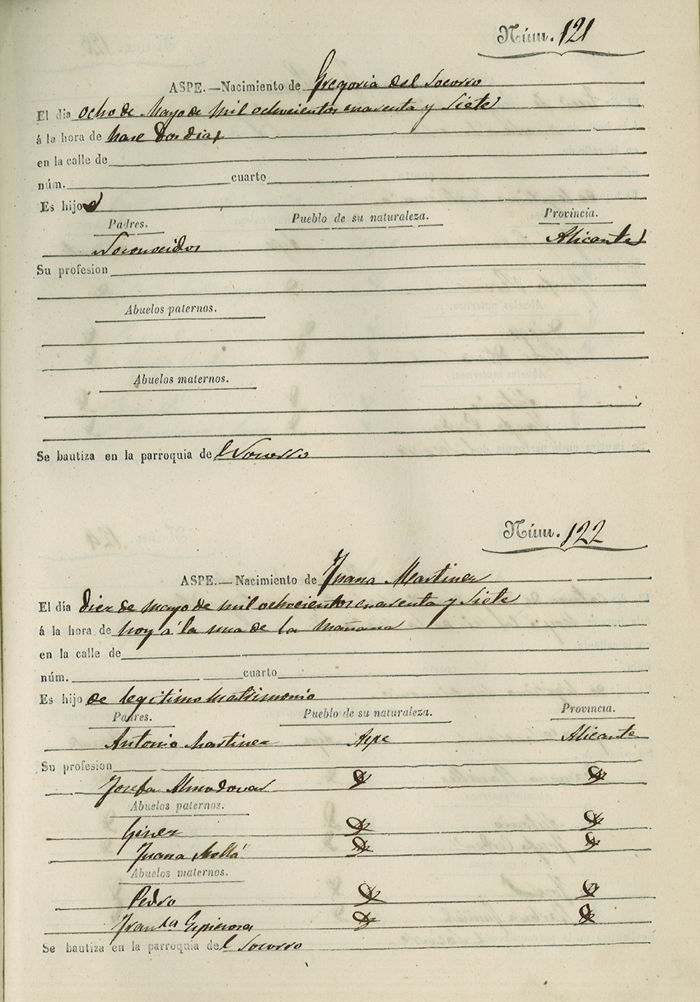 Núm. 121
ASPE.—Nacimiento de Gregoria del Socorro
El dia ocho de Mayo de mil ochocientos cuarenta y siete
á la hora de hace dos dias
en la calle de
núm. cuarto
Es hijo
Padres. Pueblo de su naturaleza. Provincia.
No conocidos Alicante
Su profesion
Abuelos paternos.
Abuelos maternos.
Se bautiza en la parroquia del Socorro
Núm. 122
ASPE.—Nacimiento de Juana Martinez
El dia diez de mayo de mil ochocientos cuarenta y siete
á la hora de hoy á la una de la mañana
en la calle de
núm. cuarto
Es hijo de legitimo matrimonio
Padres. Pueblo de su naturaleza. Provincia.
Antonio Martinez Aspe Alicante
Su profesion
Josefa Almodovar
Abuelos paternos.
Ginez
Juana Mollá
Abuelos maternos.
Pedro
Espinosa
Se bautiza en la parroquia del Socorro